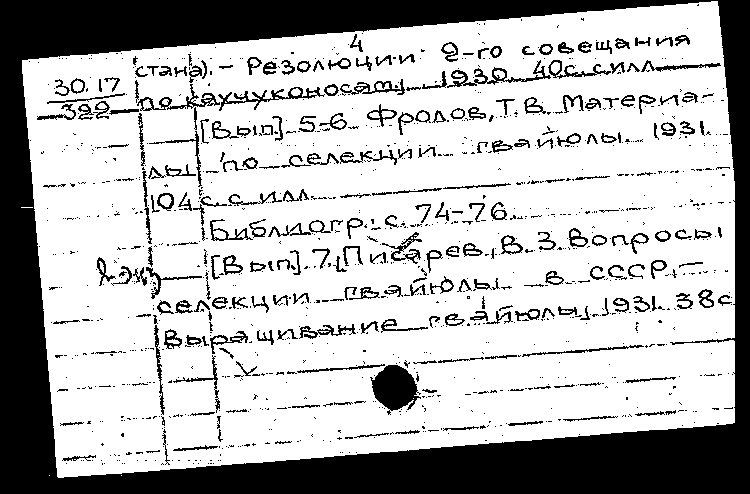 4
стана).– Резолюции 2-го совещания
30.17
399
по каучуконосам]. 1930. 40с. с илл.
[Вып]. 5-6. Фролов, Т.В. Материа-
лы по селекции гвайюлы. 1931.
104 с. с илл.
Библиогр.: с. 74-76.
[Вып]. 7. [Писарев, В. Вопросы
селекции гвайюлы в СССР.–
Выращивание гвайюлы], 1931. 38с